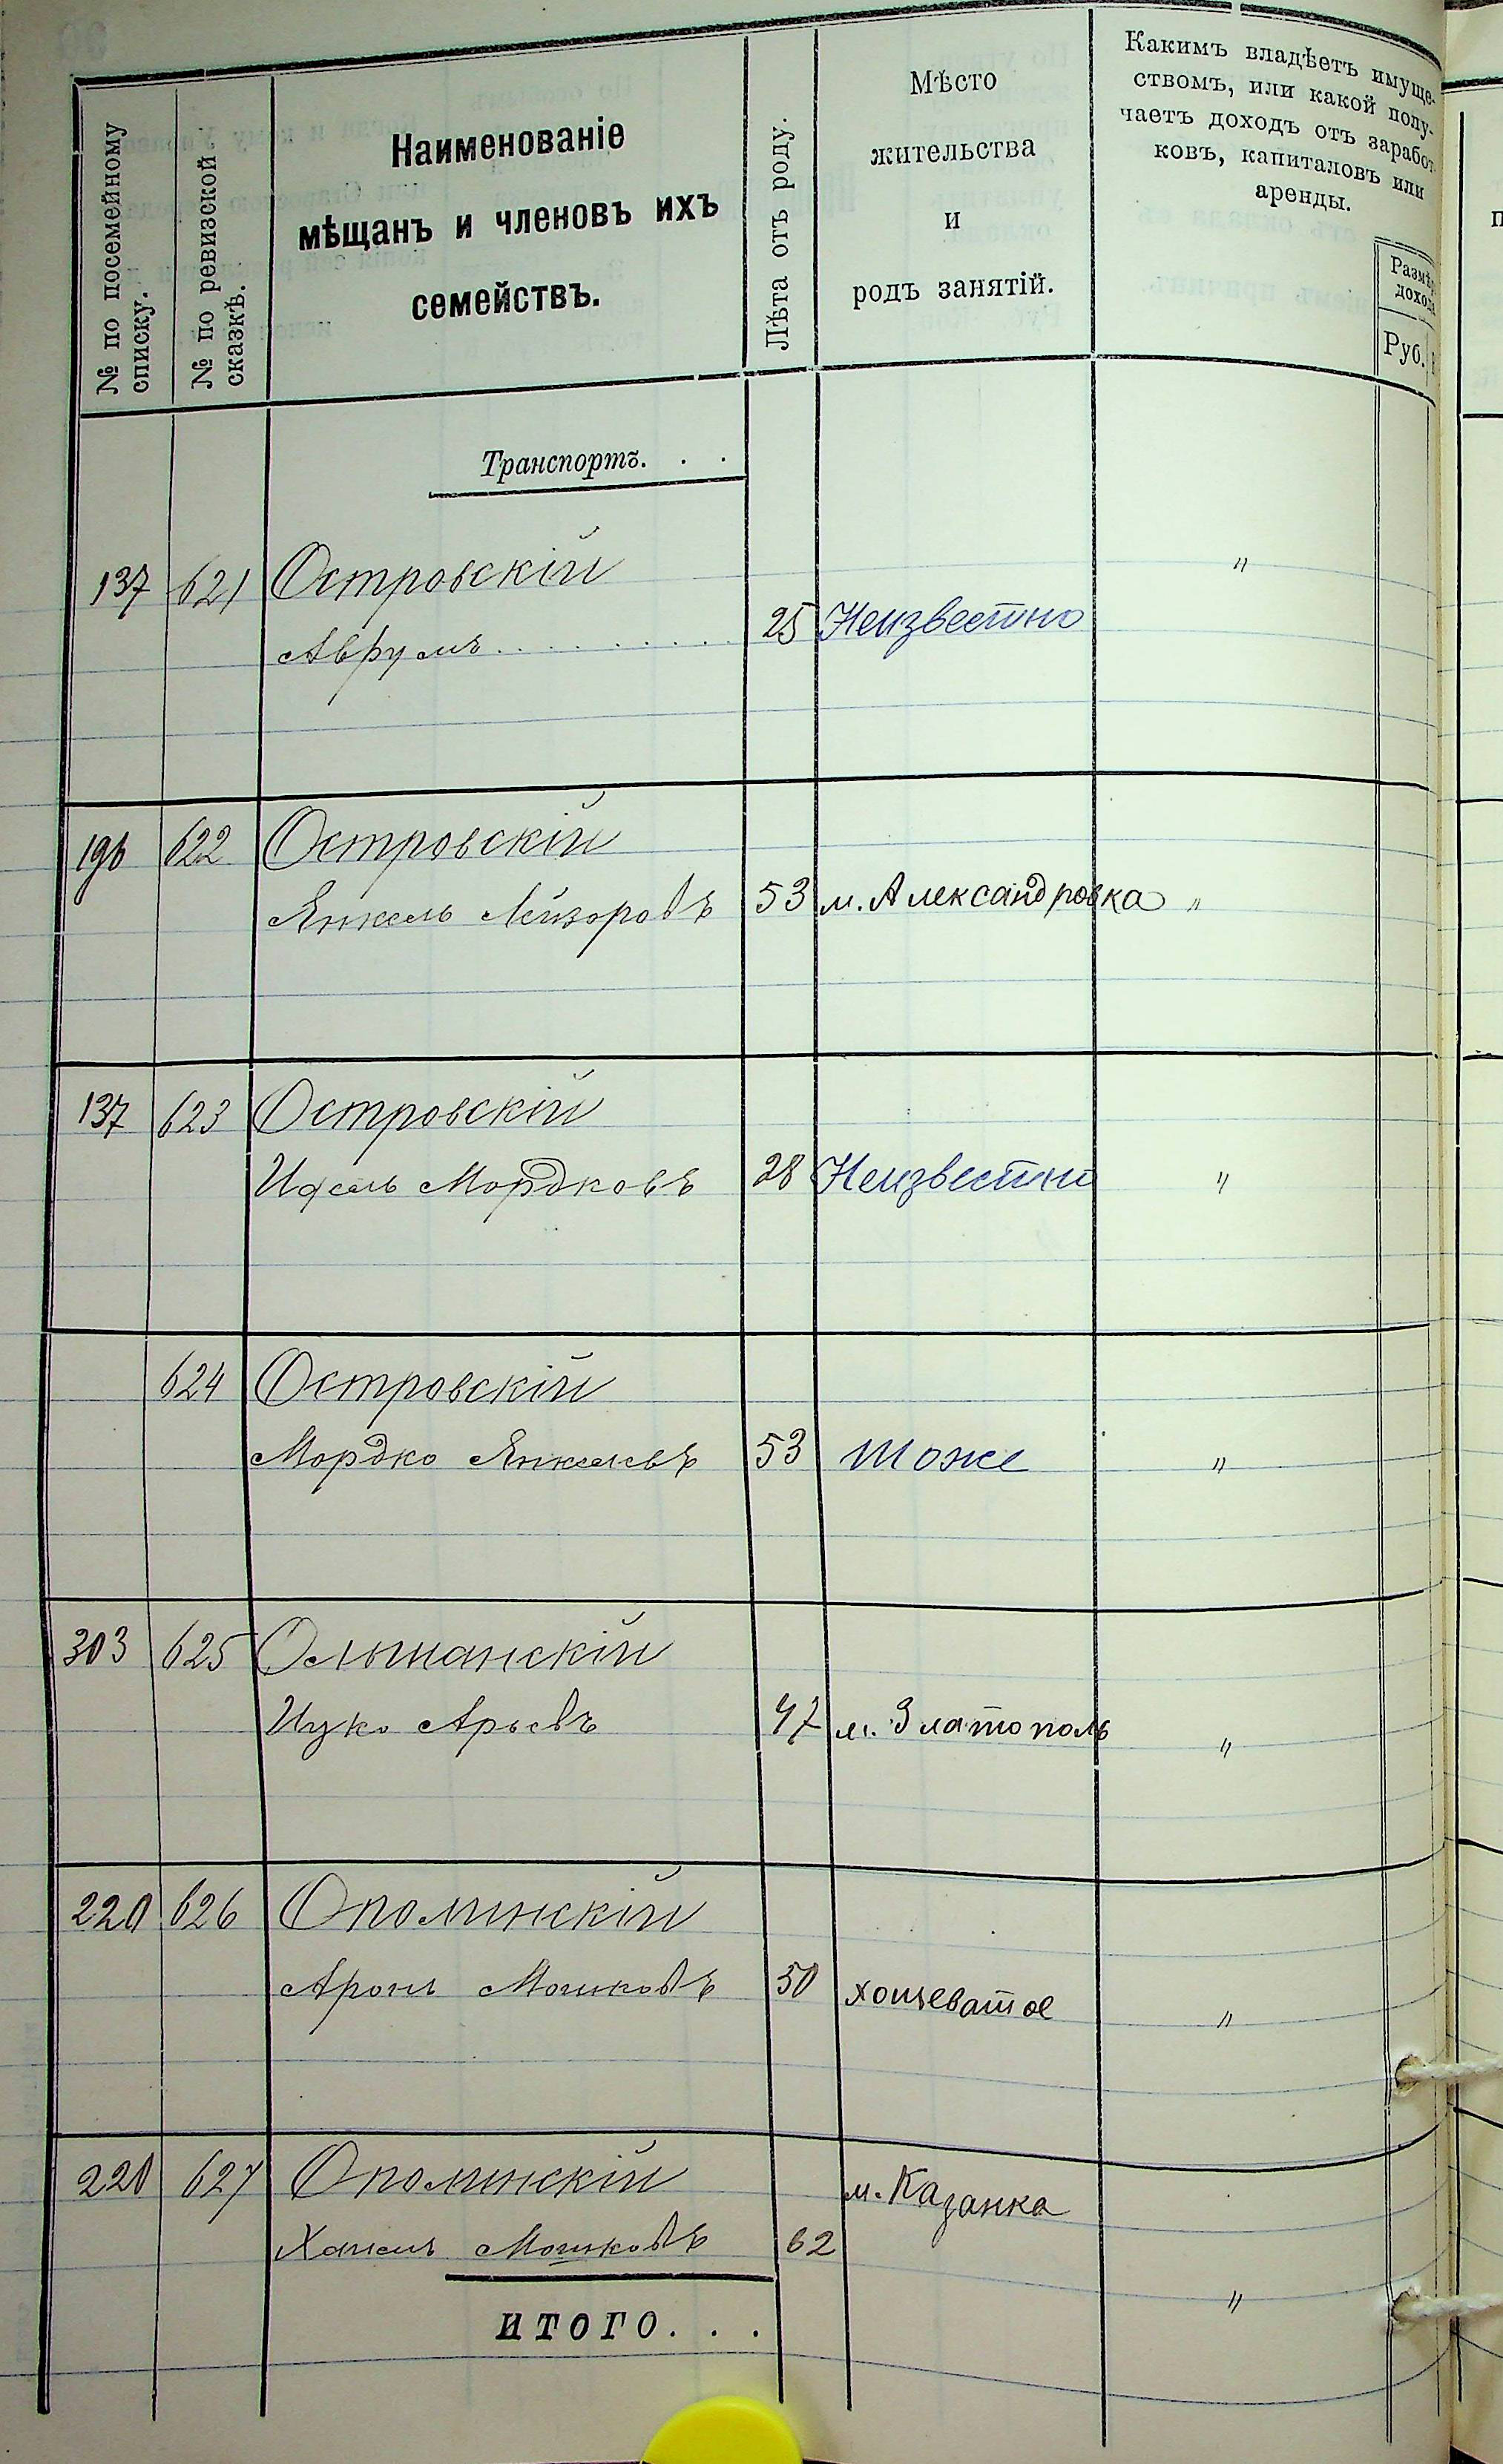 № по посемейному
списку.
№ по ревизской
сказкѣ.
Наименованіе
мѣщанъ и членовъ ихъ
семействъ.
Лѣта отъ роду.
Мѣсто
жительства
и
родъ занятій.
Какимъ владѣетъ имуще-
ствомъ, или какой полу-
чаетъ доходъ отъ заработ-
ковъ, капиталовъ или
аренды.
Размѣр
дохода
Руб.
Транспортъ. . .
137 621 Островскій "
Аврумъ . . . . . . . . . 25 Неизвестно
196 622 Островскій
Янкель Лейзоровъ 53 м. Александровка "
137 623 Островскій
Идель Мордковъ 28 Неизвестно "
624 Островскій
Мордко Янкелевъ 53 тоже "
303 625 Ольшанскій
Ицко Арьевъ 47 м. Златополь "
220 626 Ополинскій
Аронъ Мошковъ 50 хощеватое "
220 627 Ополинскій м. Казанка
Мошковъ 62 "
ИТОГО. . .